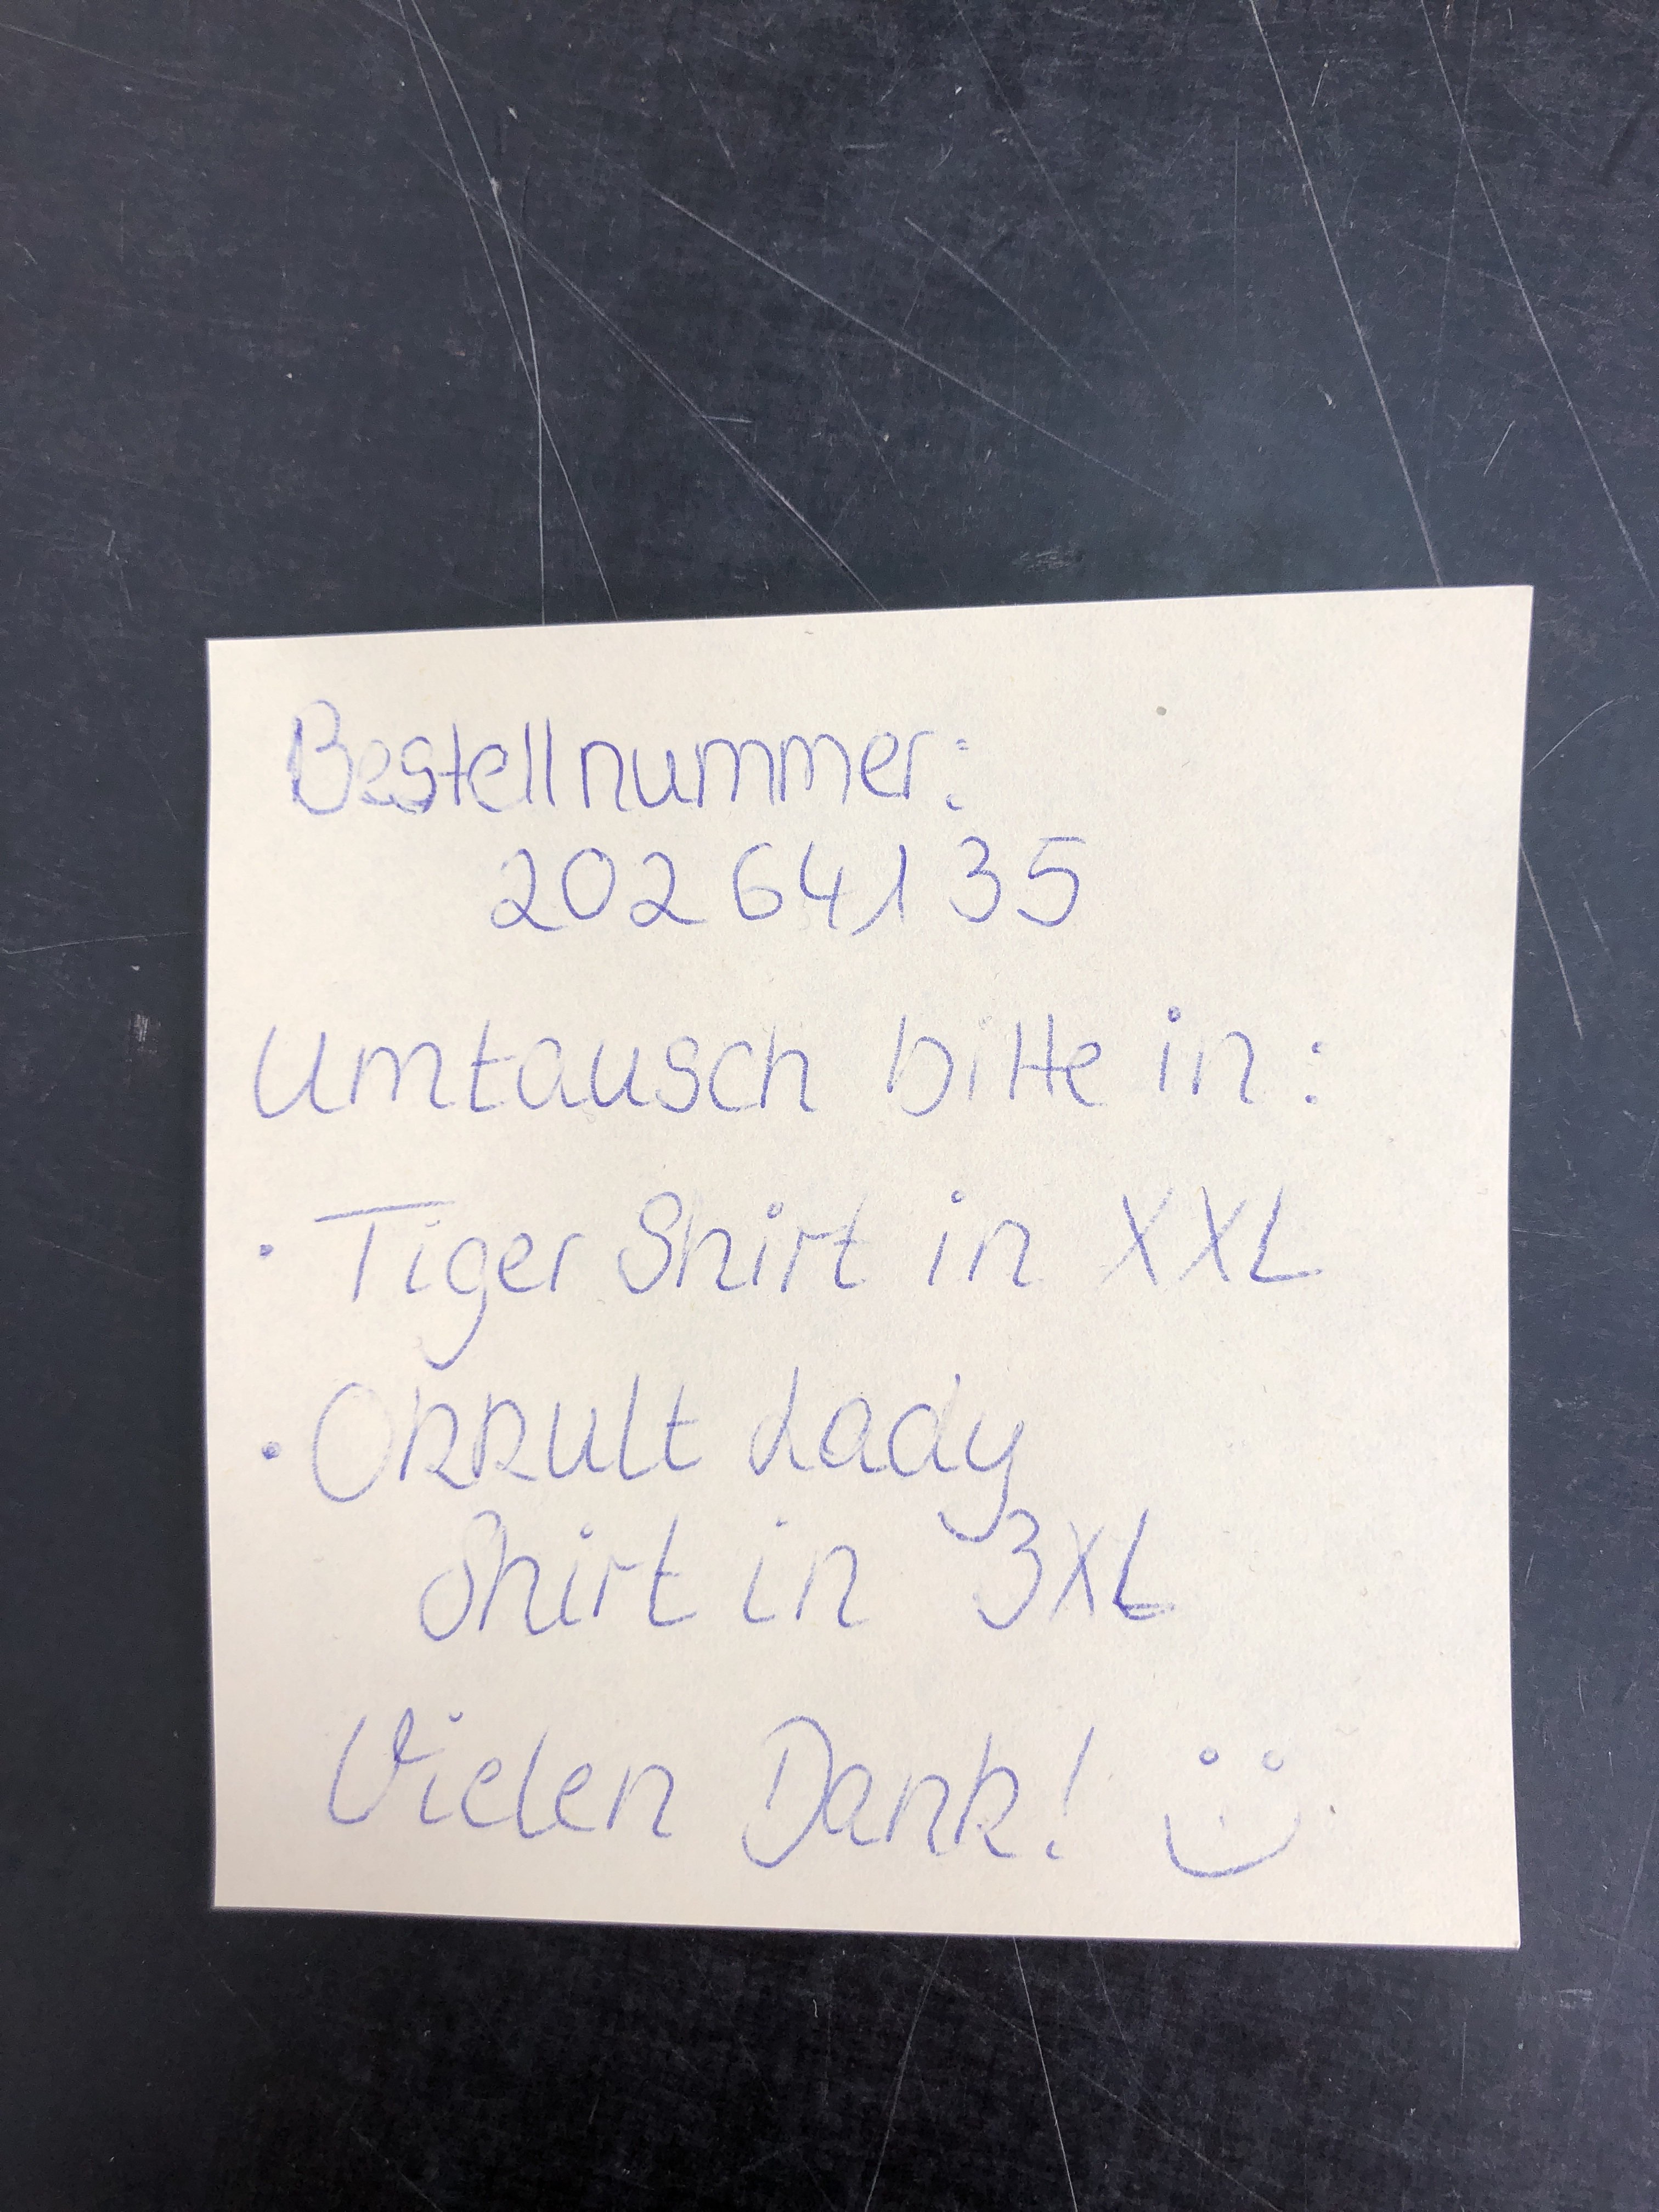 Bestellnummer:
20264135
Umtausch bitte in:
· Tiger Shirt in XXL
· Okkult Lady
Shirt in 3XL
Vielen Dank! :)